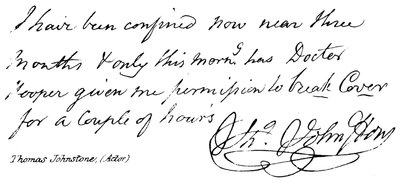 I have been confined now near three
months & only this morng has Doctor
Hooper given me permission to break Cover
for a Couple of hours
Jno. Johnstone
Thomas Johnstone, (Actor)